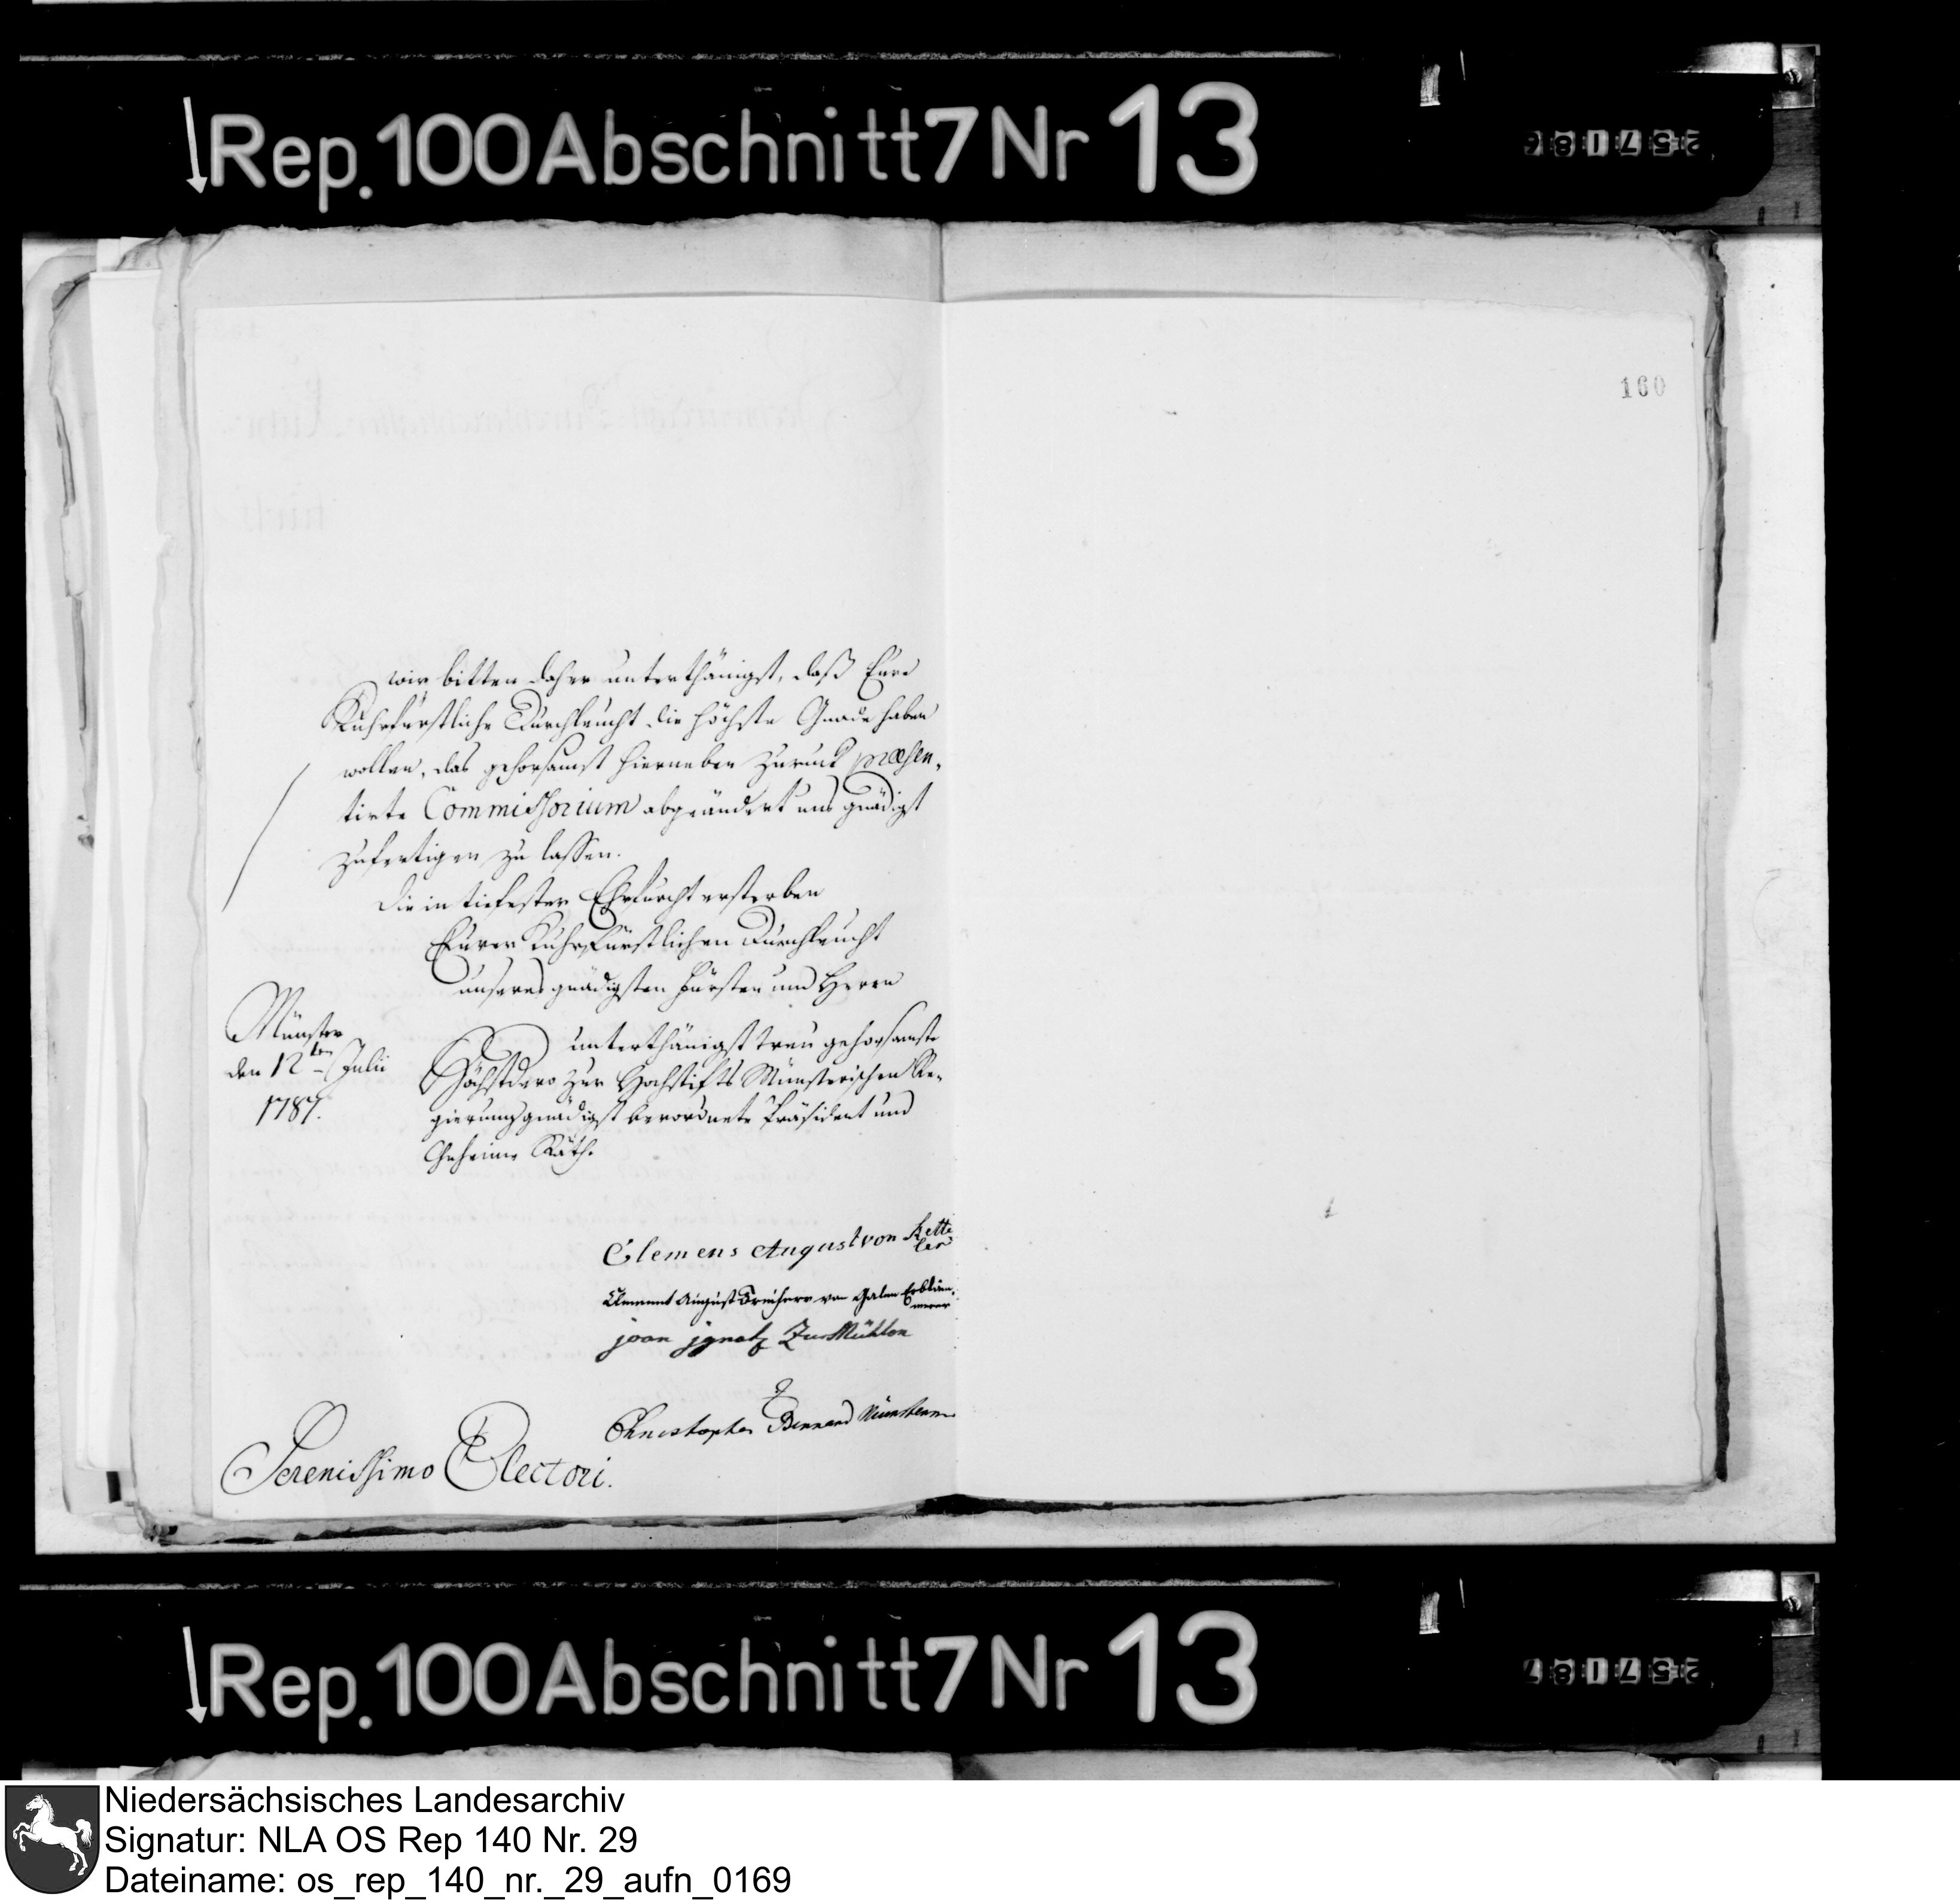 Rep. 100 Abschnitt 7 Nr 13
257186
160
wir bitten daher unterthänigst, daß Eure
Kuhrfürstliche Durchleucht die höchste Gnade haben
wollen, das gehorsamst hierneben zuruck præsen-
tirte Commissorium abgeändert uns gnädigst
zufertigen zu lassen.
Die in tiefester Ehrfurcht ersterben
Eurer Kuhrfürstlichen Durchleucht
unseres gnädigsten Fürsten und Herrn
Münster
den 12ten Julii
1787.
unterthänigst treu gehorsamste
Höchstdero zur Hochstifts Münsterischen Re-
gierung gnädigst verordnete Präsident und
Geheime Räthe.
Clemens August von Kette
ler
Clement August Freiherr von Galen Erbkäm-
merer
joan jgnatz Zur Mühlen
Christopher Bernard Münsterm
Serenissimo Electori.
Rep. 100 Abschnitt 7 Nr 13
257187
Niedersächsisches Landesarchiv
Signatur: NLA OS Rep 140 Nr. 29
Dateiname: os_rep_140_nr._29_aufn_0169